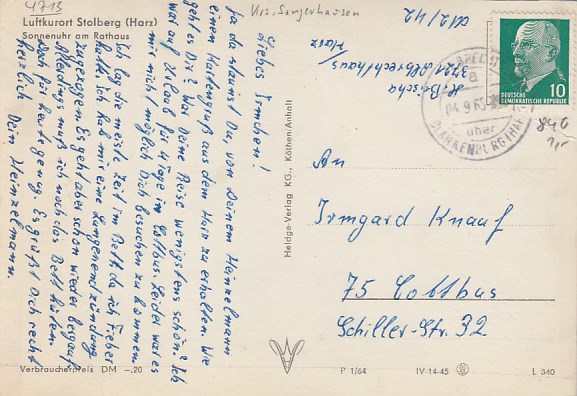 4713
Krs. Sangerhausen
Luftkurort Stolberg (Harz)
Sonnenuhr am Rathaus
Liebes Irmchen!
Ja da staunst Du, von Deinem Heinzelmann
einen Kartengruß aus dem Harz zu erhalten. Wie
geht es Dir? War Deine Reise wenigstens schön? Ich
war auf Urlaub für 4 Tage in Cottbus. Leider war es
mir nicht möglich Dich besuchen zu kommen
Ich lag die meiste Zeit im Bett da ich Fieber
hatte. Ich hab mir eine Lungenentzündung
zugezogen. Es geht aber schon wieder bergauf
Allerdings muß ich noch das Bett hüten.
Doch für heute genug. Es grüßt Dich recht
herzlich Dein Heinzelmann.
Verbraucherpreis DM -,20
Heldge-Verlag KG., Köthen/Anhalt
H.
3721
Harz
a
04.9.65
über
BLANKENBURG (HARZ)
DEUTSCHE
DEMOKRATISCHE REPUBLIK
10
840
An
Irmgard Knauf
75 Cottbus
Schiller-Str. 32
P 1/64
IV-14-45
L 340